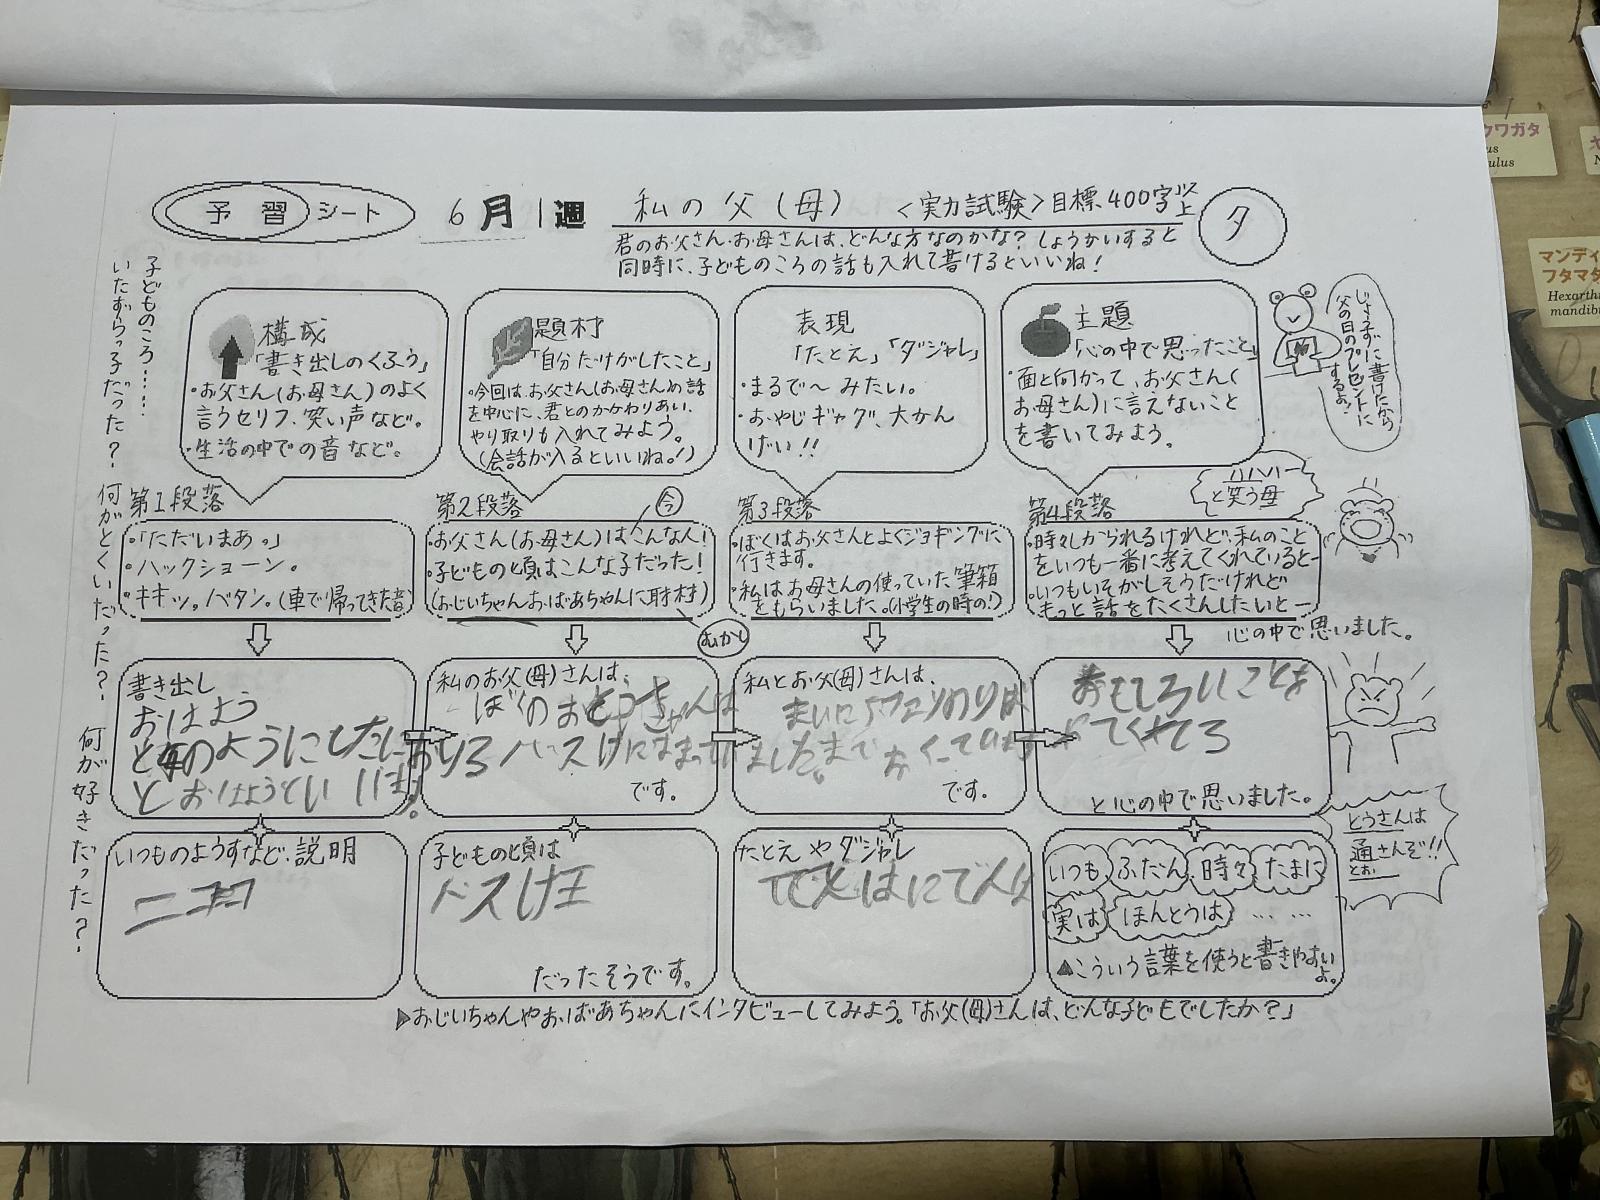 予習シート
6月1週
私の父(母)
<実力試験>目標400字以上
夕
君のお父さん・お母さんは、どんな方なのかな?しょうかいすると
同時に、子どものころの話も入れて書けるといいね!
子どものころ……
いたずらっ子だった?
何がとくいだった?
何が好きだった?
構成
「書き出しのくふう」
・お父さん(お母さん)のよく
言うセリフ、笑い声など。
・生活の中での音など。
題材
「自分だけがしたこと」
・今回は、お父さん(お母さん)の話
を中心に、君とのかかわりあい、
やり取りも入れてみよう。
(会話が入るといいね!)
表現
「たとえ」「ダジャレ」
・まるで〜みたい。
・おやじギャグ、大かん
げい!!
主題
「心の中で思ったこと」
・面と向かって、お父さん(
お母さん)に言えないこと
を書いてみよう。
じょうずに書けたから
父の日のプレゼントに
するよ!
ハハハー
と笑う母
第1段落
・「ただいまあ。」
・ハックショーン。
・キキッ。バタン。(車で帰ってきた音)
第2段落
今
・お父さん(お母さん)はこんな人!
・子どもの頃はこんな子だった!
(おじいちゃんおばあちゃんに取材)
むかし
第3段落
・ぼくはお父さんとよくジョギングに
行きます。
・私はお母さんの使っていた筆箱
をもらいました。(小学生の時の!)
第4段落
・時々しかられるけれど、私のこと
をいつも一番に考えてくれていると―
・いつもいそがしそうだけれど
もっと話をたくさんしたいと―
心の中で思いました。
書き出し
おはよう
のようにしたに
とおはようといいま
私のお父(母)さんは、
ぼくのおとうさんは
です。
私とお父(母)さんは、
まいにち
ました。
です。
おもしろいことを
やてくれてろ
と心の中で思いました。
とうさんは
通さんぞ!!
とお
いつものようすなど、説明
ニコニコ
子どもの頃は
だったそうです。
たとえやダジャレ
いつも ふだん 時々 たまに
実は ほんとうは ……
▲こういう言葉を使うと書きやすいよ。
▶おじいちゃんやおばあちゃんにインタビューしてみよう。「お父(母)さんは、どんな子どもでしたか?」
クワガタ
ulus
マンディ
フタマタ
Hexarthr
mandibu